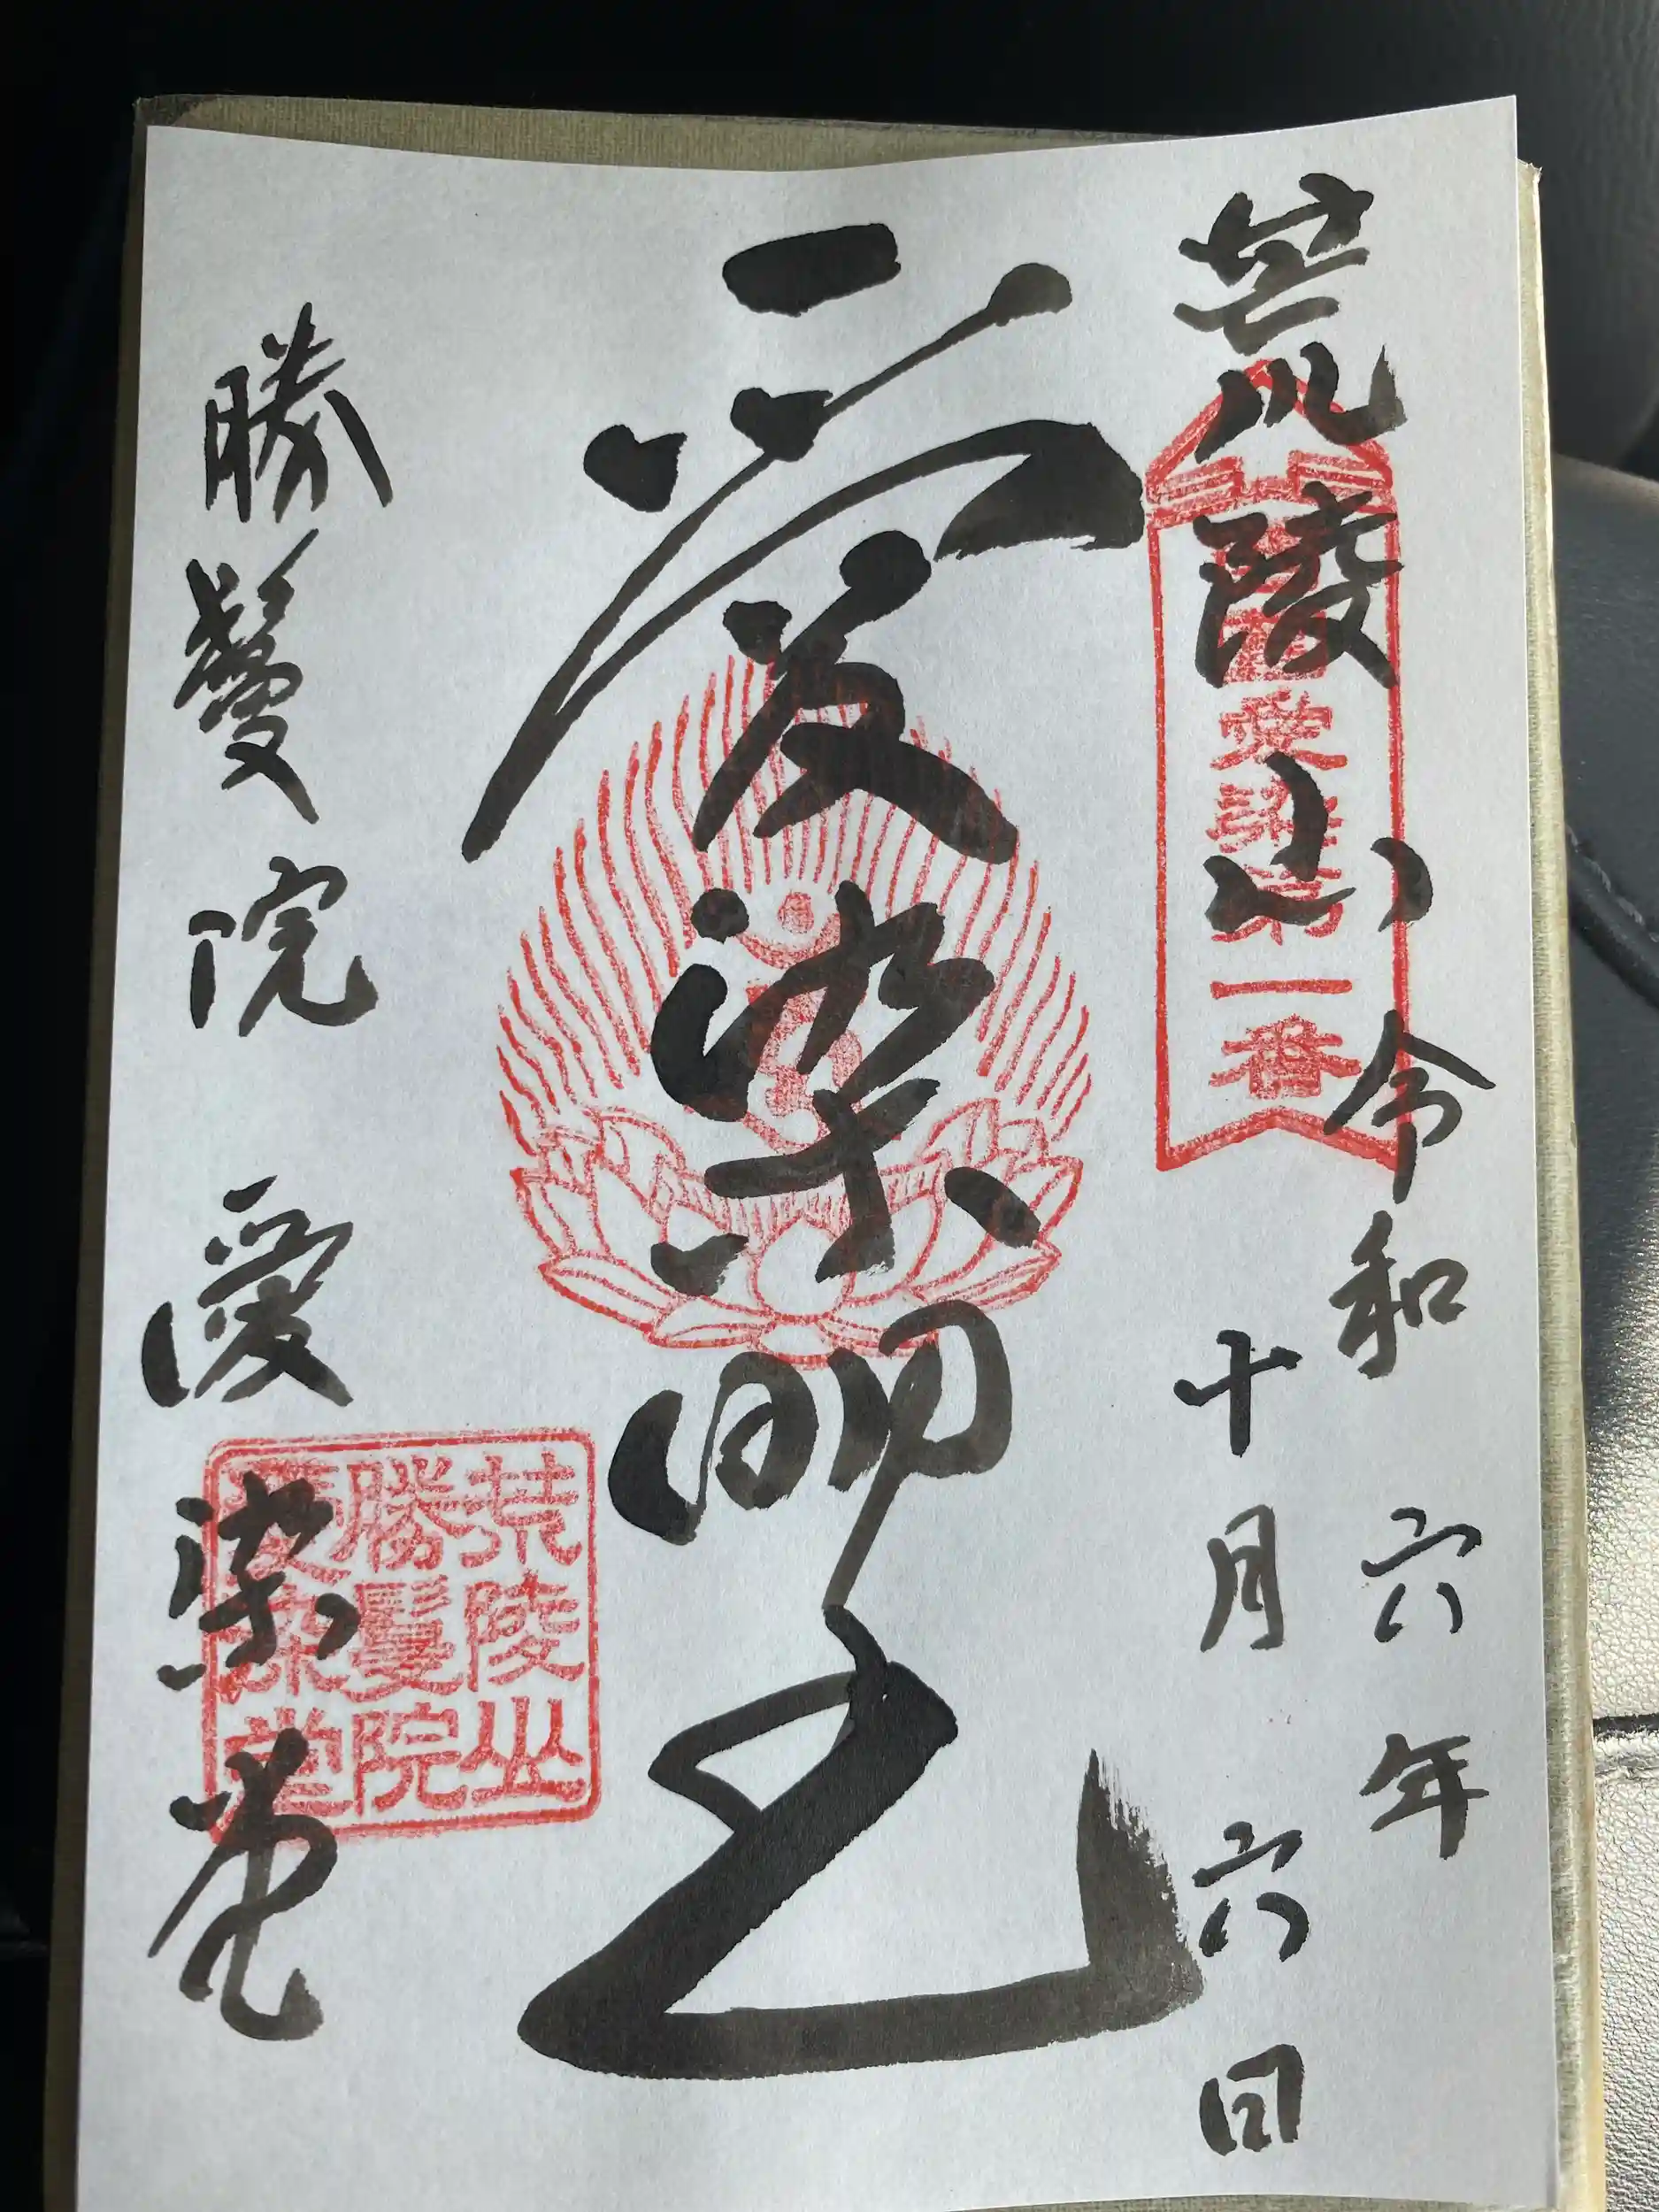 荒陵山
愛染第一番
令和六年
十月六日
愛染明王
勝鬘院 愛染堂
荒陵山
勝鬘院
愛染堂